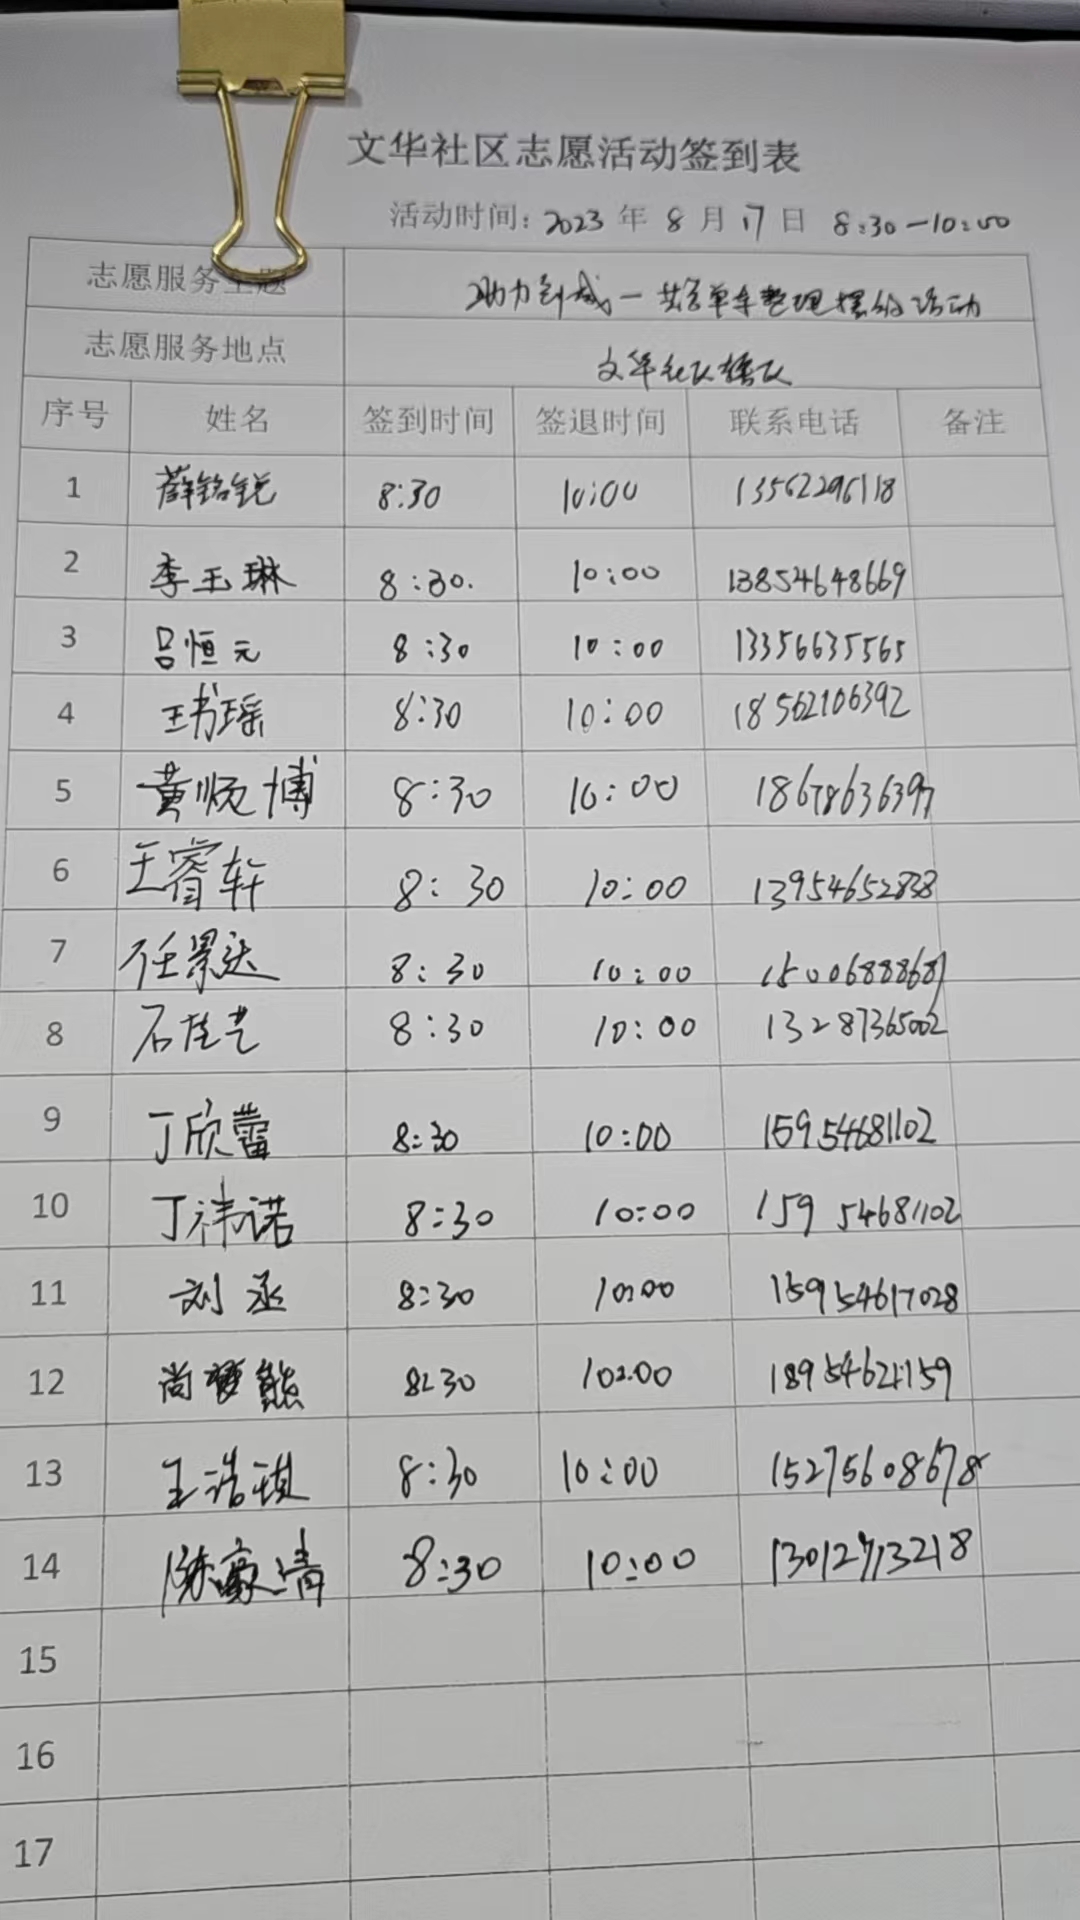 文华社区志愿活动签到表
活动时间: 2023 年 8 月 17 日 8:30—10:00
志愿服务主题 助力创城—共享单车整理摆放活动
志愿服务地点 文华社区辖区
序号 姓名 签到时间 签退时间 联系电话 备注
1 薛铭锐 8:30 10:00 13562296118
2 李玉琳 8:30. 10:00 13854648669
3 吕恒元 8:30 10:00 13356635565
4 王书瑶 8:30 10:00 18562106392
5 黄顺博 8:30 10:00 18678636397
6 王睿轩 8:30 10:00 13954652838
7 任景达 8:30 10:00 15006888681
8 石佳艺 8:30 10:00 13287365002
9 丁欣蕾 8:30 10:00 15954681102
10 丁祎诺 8:30 10:00 15954681102
11 刘丞 8:30 10:00 15954617028
12 尚梦熊 8:30 10:00 18954621159
13 王浩琪 8:30 10:00 15275608678
14 陈豪清 8:30 10:00 13012713218
15
16
17